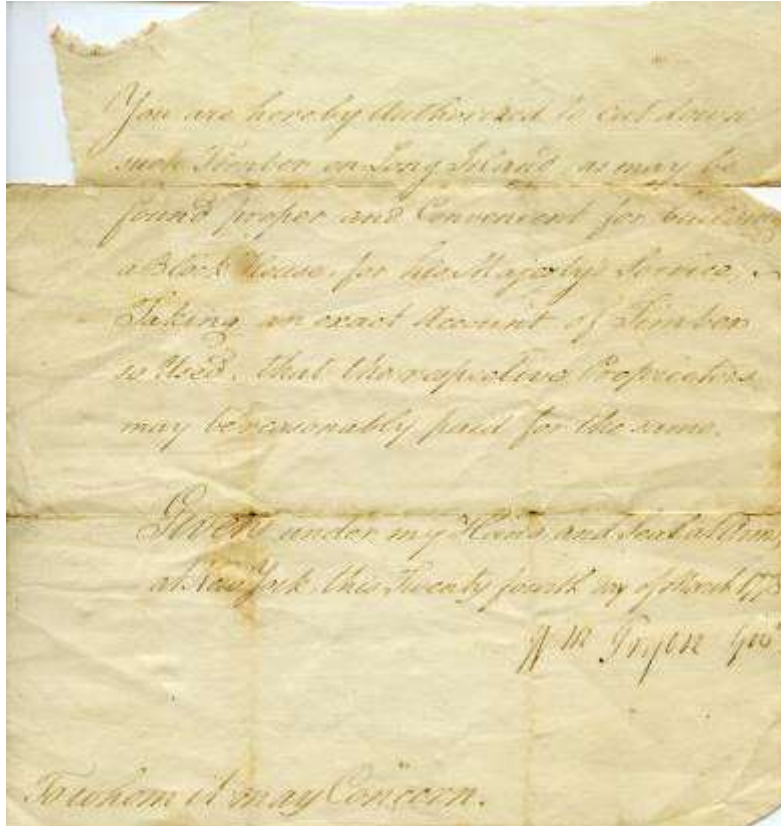 You are hereby Authorized to cut down
such Timber on Long Island, as may be
found proper and Convenient for building
a Block House, for his Majesty's Service,
Taking an exact Account of Timber
so Used, that the respective Proprietors
may be reasonably paid for the same.
Given under my Hand and Seal at Arms
at New York this Twenty fourth day of March 177
Wm Tryon Govr
To whom it may Concern.